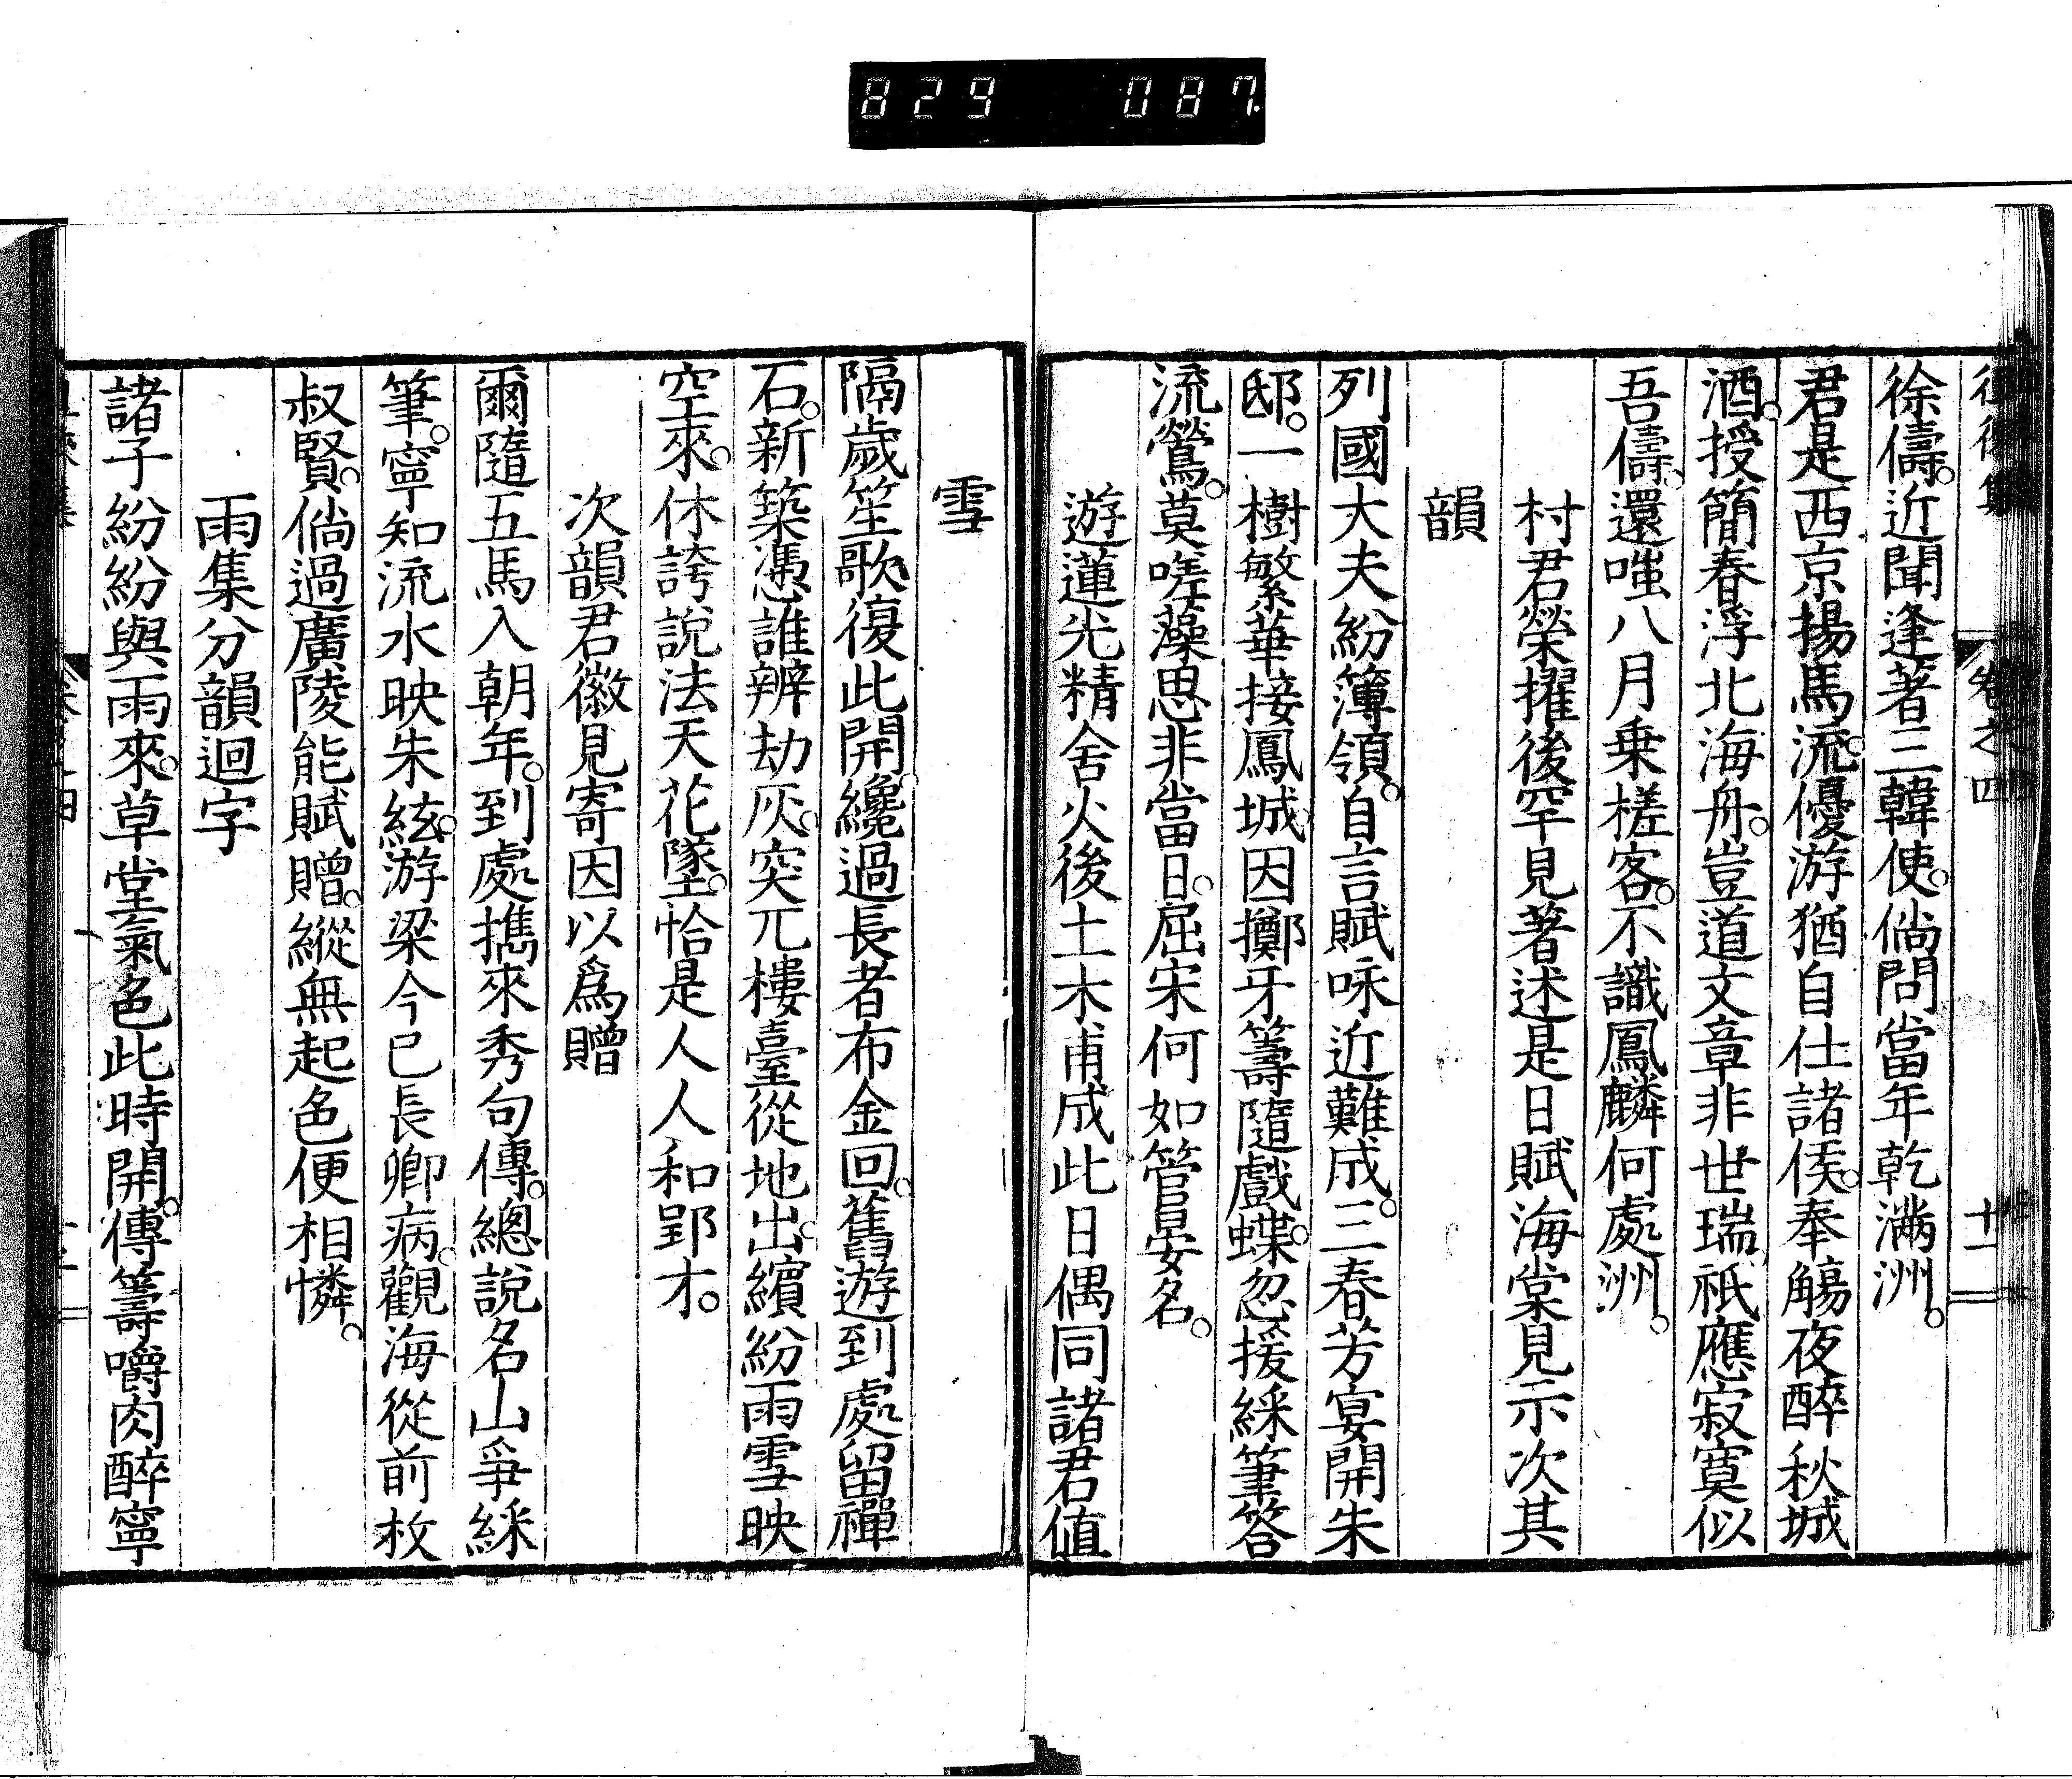 829 087
卷之四 十一
徐儔。近聞逢著三韓使。倘問當年乾滿洲。
君是西京揚馬流。優游猶自仕諸侯。奉觴夜醉秋城
酒。授簡春浮北海舟。豈道文章非世瑞。祇應寂寞似
吾儔。還嗤八月乗槎客。不識鳳麟何處洲。
村君榮擢後罕見著述是日賦海棠見示次其
韻
列國大夫紛簿領。自言賦咏近難成。三春芳宴開朱
邸。一樹繁華接鳳城。因擲牙籌隨戲蝶。忽援綵筆答
流鶯。莫嗟藻思非當日。屈宋何如管晏名。
遊蓮光精舍火後土木甫成此日偶同諸君値
雪
隔歲笙歌復此開。纔過長者布金回。舊遊到處留禪
石。新築憑誰辨劫灰。突兀樓臺從地出。繽紛雨雪映
空來。休誇說法天花墜。恰是人人和郢才。
次韻君徽見寄因以爲贈
爾隨五馬入朝年。到處攜來秀句傳。總說名山爭綵
筆。寧知流水映朱絃。游梁今已長卿病。觀海從前枚
叔賢。倘過廣陵能賦贈。縱無起色便相憐。
雨集分韻迴字
諸子紛紛與雨來。草堂氣色此時開。傳籌嚼肉醉寧